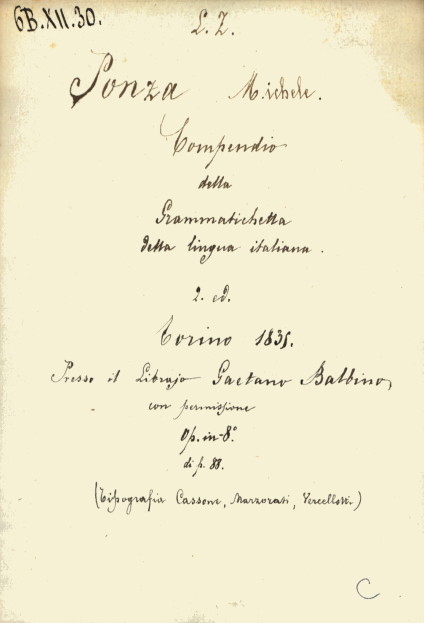 6B.XII.30.
L. Z.
Ponza Michele.
Compendio
della
Grammatichetta
della lingua italiana.
2. ed.
Torino 1835.
Presso il Librajo Gaetano Balbino,
con permissione
Op. in-8°
di p. 88.
(Tipografia Cassone, Marzorati, Vercellotti.)
C